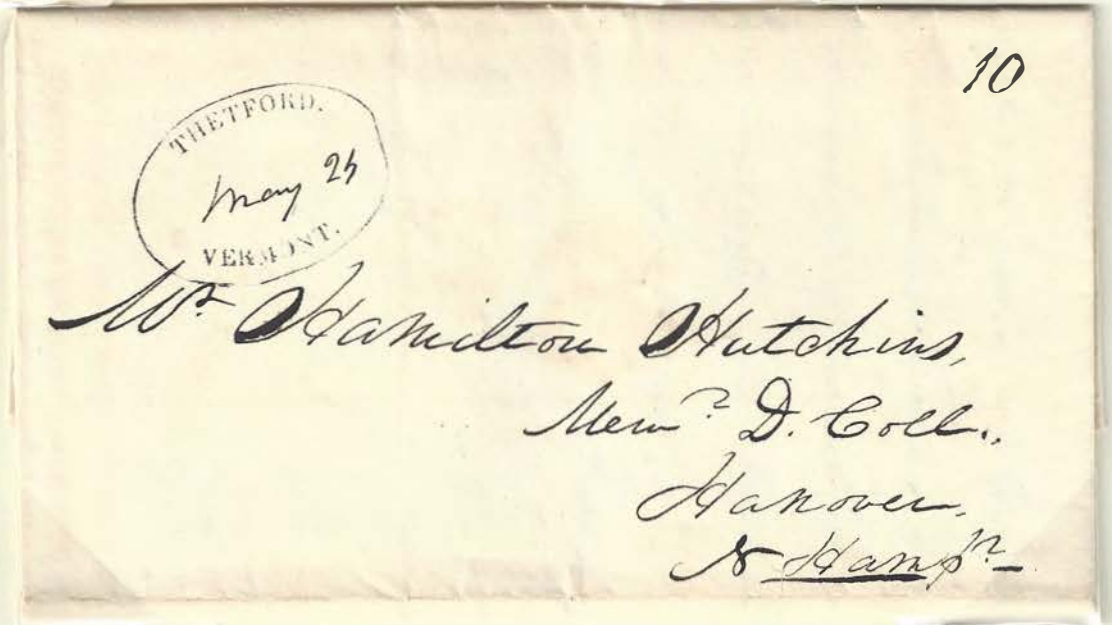 10
THETFORD.
May 25
VERMONT.
Mr Hamilton Hutchins,
Memr D. Coll.,
Hanover.
N Hampr